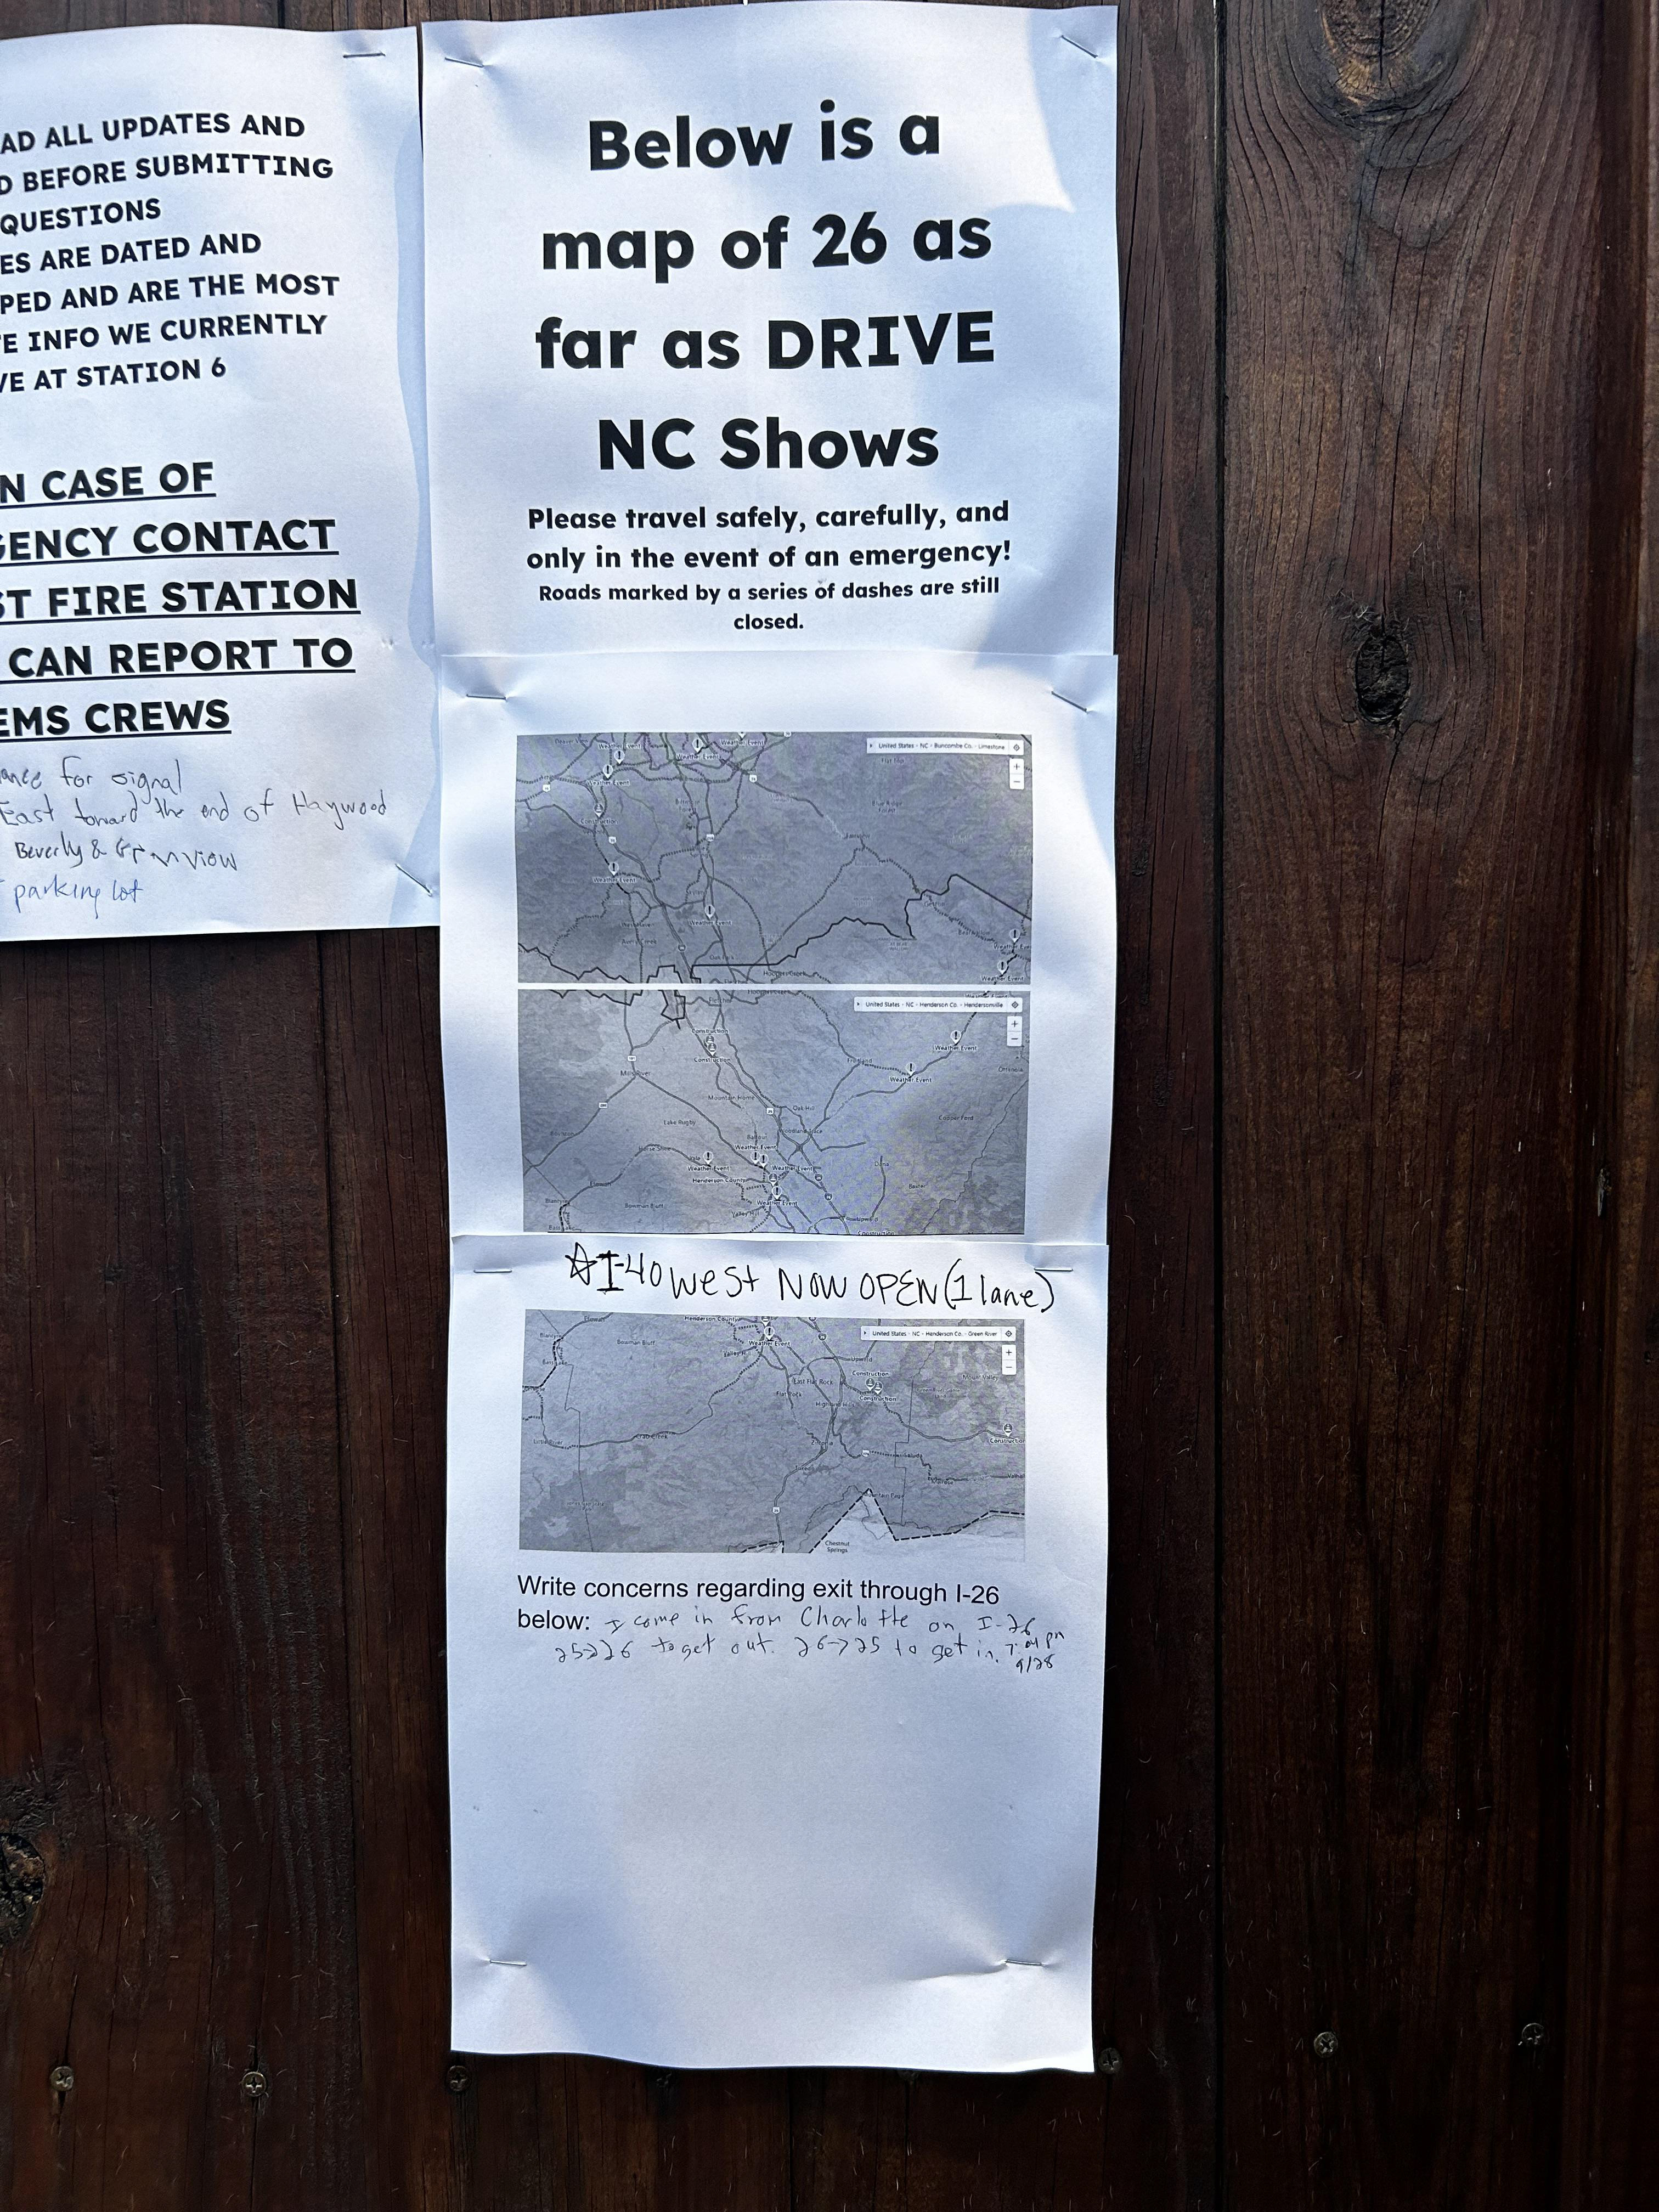 AD ALL UPDATES AND
D BEFORE SUBMITTING
QUESTIONS
ES ARE DATED AND
PED AND ARE THE MOST
E INFO WE CURRENTLY
VE AT STATION 6
N CASE OF
GENCY CONTACT
ST FIRE STATION
CAN REPORT TO
EMS CREWS
for signal
East toward the end of Haywood
Beverly &
parking lot
Below is a
map of 26 as
far as DRIVE
NC Shows
Please travel safely, carefully, and
only in the event of an emergency!
Roads marked by a series of dashes are still
closed.
United States - NC - Buncombe Co. - Limestone
Weather Event
Weather Event
Weather Event
Construction
Weather Event
Weather Event
Avery Creek
Weather Event
United States - NC - Henderson Co. - Hendersonville
Construction
Construction
Weather Event
Weather Event
Mills River
Mountain Home
Oak Hill
Lake Rugby
Weather Event
Weather Event
Weather Event
Dana
Henderson County
Weather Event
Bowman Bluff
☆ I-40 West NOW OPEN (1 lane)
Henderson County
United States - NC - Henderson Co. - Green River
Bowman Bluff
Weather Event
East Flat Rock
Construction
Construction
Flat Rock
Crab Creek
Construction
Chestnut
Springs
Write concerns regarding exit through I-26
below: I come in from Charlotte on I-26
25→26 to get out. 26→25 to get in. 7:04 pm
9/28